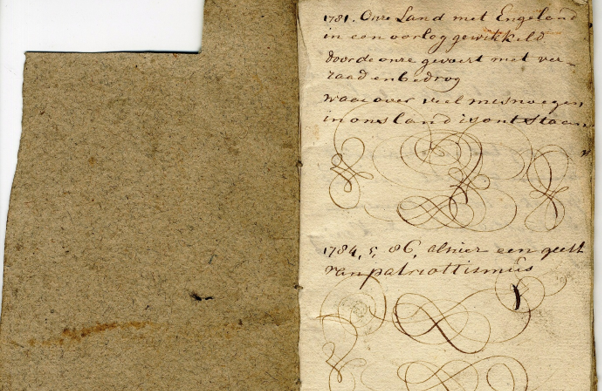 1781. Onze Land met Engeland
in een oorlog gewikkeld
door de onze gevoert met ver-
raad en bedrog
waar over veel misnoegen
in ons land is ontstaan
1784, 5, 86, alhier een geest
van patriottismus